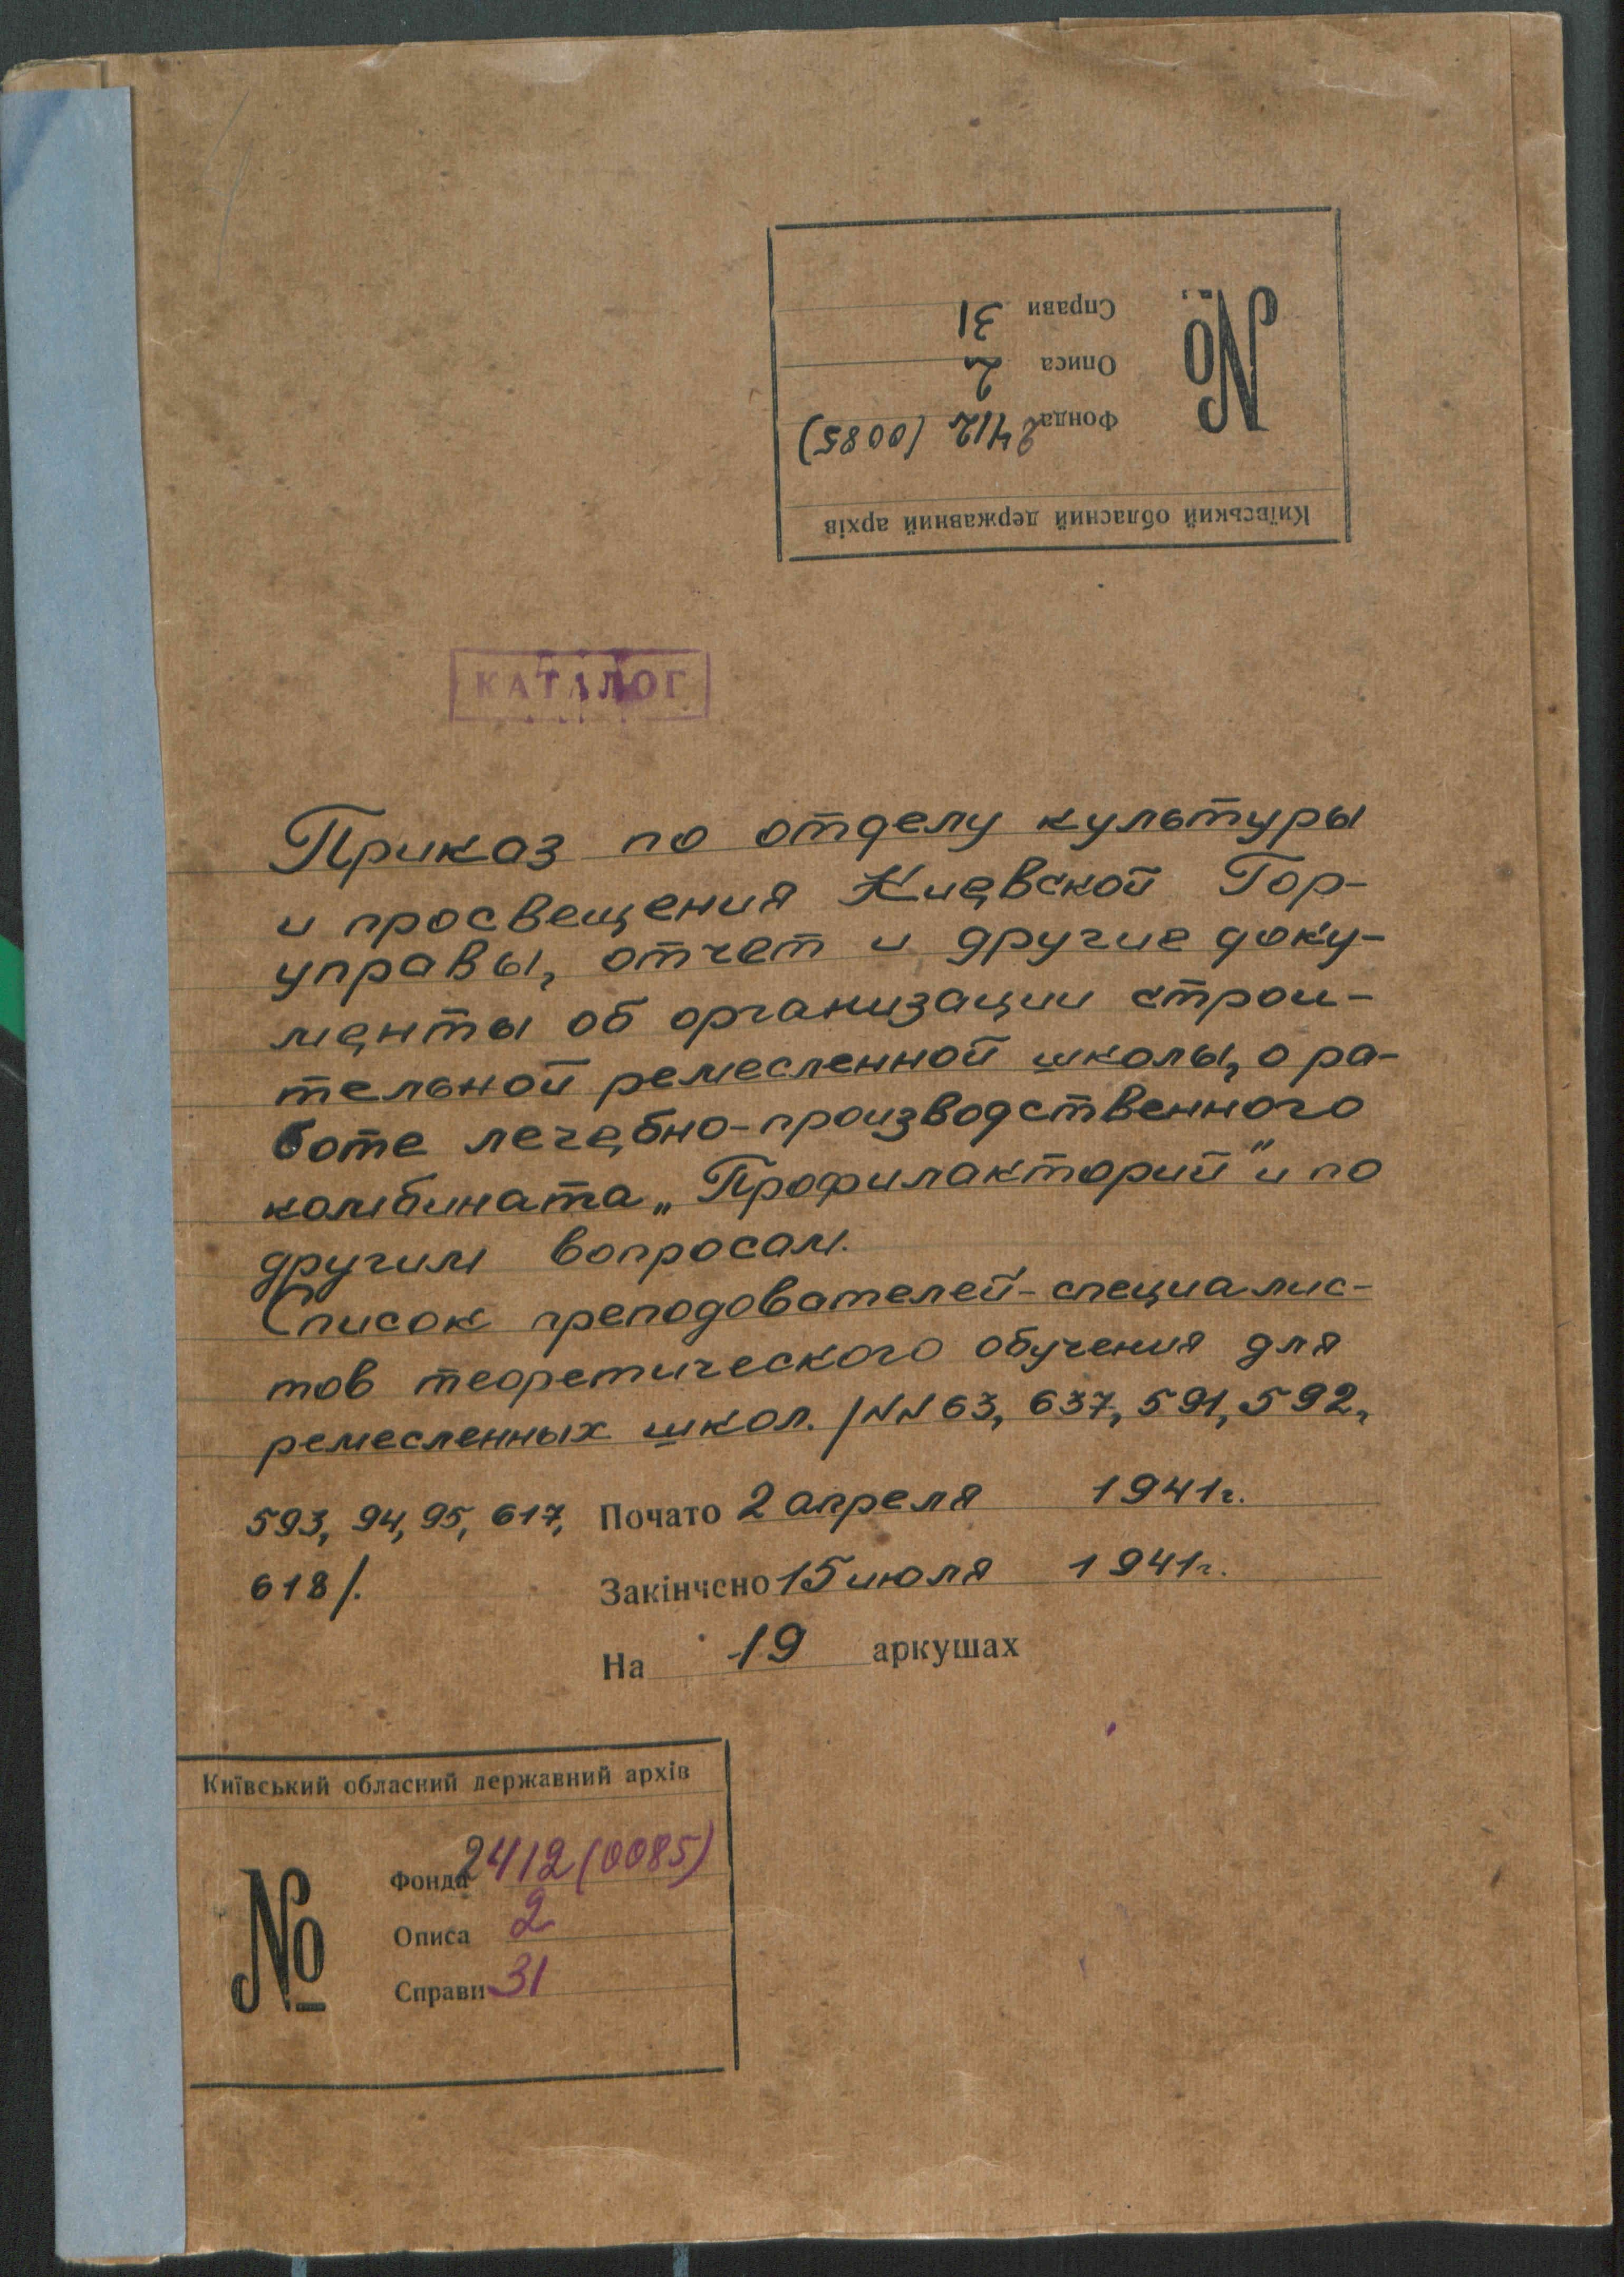 Київський обласний державний архів
№
Фонда 2412 (0085)
Описа 2
Справи 31
КАТАЛОГ
Приказ по отделу культуры
и просвещения Киевской Гор-
управы, отчет и другие доку-
менты об организации строи-
тельной ремесленной школы, о ра-
боте лечебно-производственного
комбината „Профилакторий" и по
другим вопросам.
Список преподователей-специалис-
тов теоретического обучения для
ремесленных школ. /NN 63, 637, 591, 592,
593, 94, 95, 617, Почато 2 апреля 1941г.
618/. Закінчено 15 июля 1941г.
На 19 аркушах
Київський обласний державний архів
№
Фонда 2412 (0085)
Описа 2
Справи 31